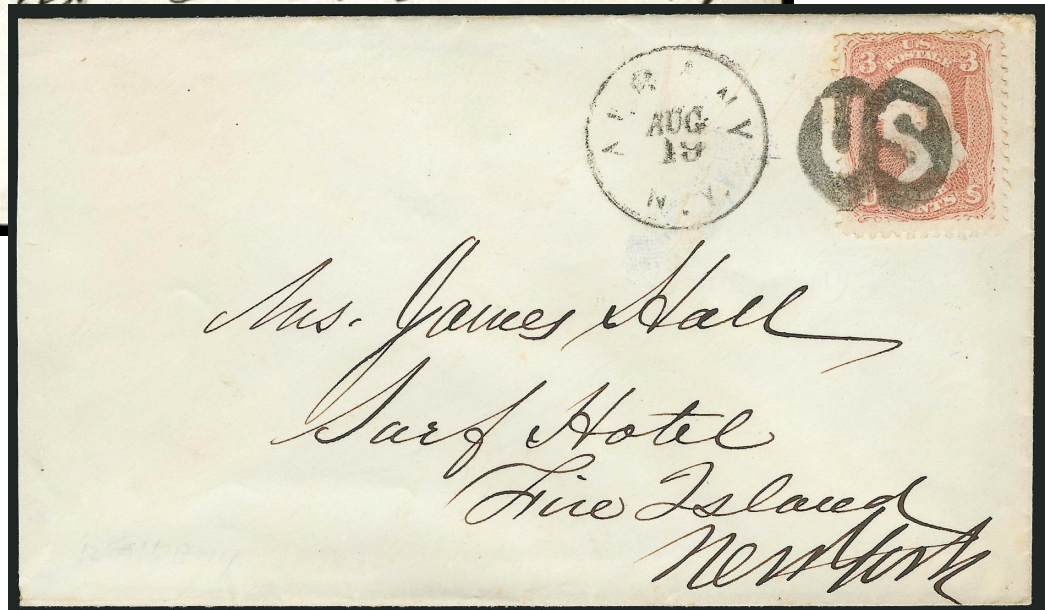 ALBANY
AUG
19
N.Y.
3 U.S. POSTAGE 3
US
U S
Mrs. James Hall
Surf Hotel
Fire Island
New York